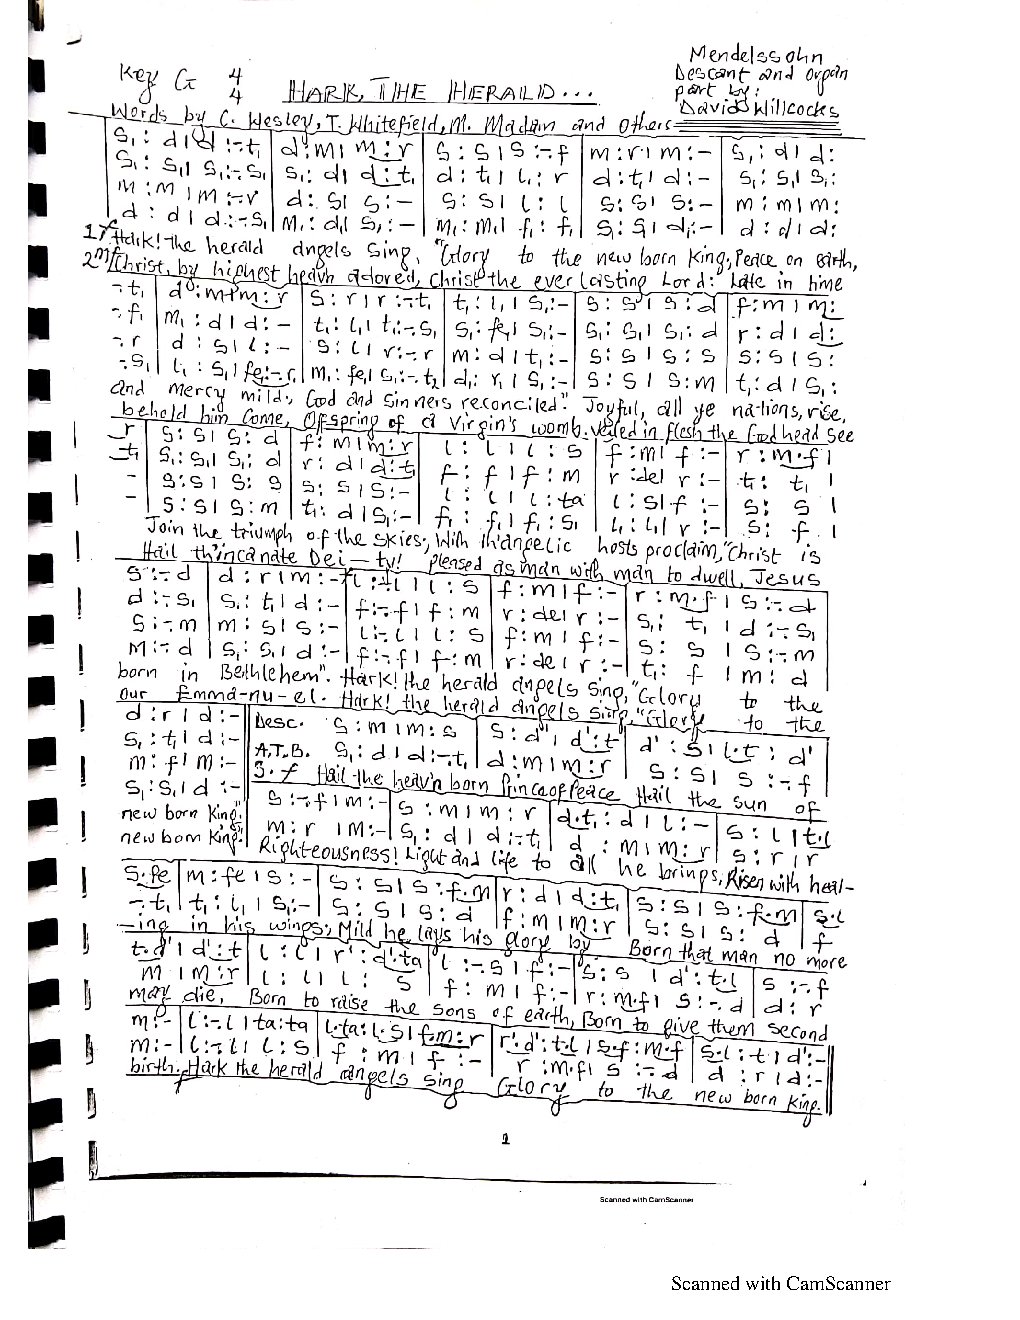 Key G 4/4
HARK, THE HERALD...
Mendelssohn
Descant and organ
part by:
David Willcocks
Words by C. Wesley, T. Whitefield, M. Madain and Others
s₁ : d | d :-.t₁ | d : m | m : r | s : s | s :-.f | m : r | m :- | s₁ : d | d :
s₁ : s₁ | s₁ :-.s₁ | s₁ : d | d : t₁ | d : t₁ | l₁ : r | d : t₁ | d :- | s₁ : s₁ | s₁ :
m : m | m :-.r | d : s | s :- | s : s | l : l | s : s | s :- | m : m | m :
d : d | d :-.s₁ | m₁ : d₁ | s₁ :- | m₁ : m₁ | f₁ : f₁ | s₁ : s₁ | d₁ :- | d : d | d :
1 f Hark! the herald angels sing, "Glory to the new born King, Peace on earth,
2 mf Christ, by highest heavn adored, Christ the everlasting Lord: Late in time
-.t₁ | d : m | m : r | s : r | r :-.t₁ | t₁ : l₁ | s₁ :- | s : s | s : d | f : m | m :
-.f₁ | m₁ : d | d :- | t₁ : l₁ | t₁ :-.s₁ | s₁ : fe₁ | s₁ :- | s₁ : s₁ | s₁ : d | r : d | d :
-.r | d : s | l :- | s : l | r :-.r | m : d | t₁ :- | s : s | s : s | s : s | s :
-.s₁ | l₁ : s₁ | fe₁ :-.r₁ | m₁ : fe₁ | s₁ :-.t₂ | d₁ : r₁ | s₁ :- | s : s | s : m | t₁ : d | s₁ :
and mercy mild, God and sinners reconciled." Joyful, all ye nations, rise,
behold him come, Offspring of a Virgin's womb. Veiled in flesh the Godhead see
r | s : s | s : d | f : m | m : r | l : l | l : s | f : m | f :- | r : m.f |
t₁ | s₁ : s₁ | s₁ : d | r : d | d : t₁ | f : f | f : m | r : de | r :- | t₁ : t₁ |
- | s : s | s : s | s : s | s :- | l : l | l : ta | l : s | f :- | s : s |
- | s : s | s : m | t₁ : d | s₁ :- | f₁ : f₁ | f₁ : s₁ | l₁ : l₁ | r :- | s : f |
Join the triumph of the skies;, With th'angelic hosts proclaim, "Christ is
Hail th'incanate Dei-ty! pleased as man with man to dwell, Jesus
s :-.d | d : r | m :- | l :-.l | l : s | f : m | f :- | r : m.f | s :-.d
d :-.s₁ | s₁ : t₁ | d :- | f :-.f | f : m | r : de | r :- | s₁ : t₁ | d :-.s₁
s :-.m | m : s | s :- | l :-.l | l : s | f : m | f :- | s : s | s :-.m
m :-.d | s₁ : s₁ | d :- | f :-.f | f : m | r : de | r :- | t₁ : f | m : d
born in Bethlehem". Hark! the herald angels sing, "Glory to the
our Emma-nu-el. Hark! the herald angels sing, "Glory to the
d : r | d :- | Desc. s : m | m : s | s : d' | d' : t | d' : s | l.t : d'
s₁ : t₁ | d :- | A.T.B. s₁ : d | d :-.t₁ | d : m | m : r | s : s | s :-.f
m : f | m :- | 3. f Hail the heav'n born Prince of Peace Hail the sun of
s₁ : s₁ | d :-
new born King." s :-.f | m :- | s : m | m : r | d.t₁ : d | l :- | s : l | t.l
new born King." m : r | m :- | s₁ : d | d :-.t₁ | d : m | m : r | s : r | r
Righteousness! Light and life to all he brings, Risen with heal-
s.fe | m : fe | s :- | s : s | s : f.m | r : d | d : t₁ | s : s | s : f.m | s.l
-.t₁ | t₁ : l₁ | s₁ :- | s : s | s : d | f : m | m : r | s : s | s : d | f
-ing in his wings; Mild he lays his glory by Born that man no more
t.d' | d' : t | l : l | r' : d'.ta | l :-.s | f :- | s : s | d' : t.l | s :-.f
m | m : r | l : l | l : s | f : m | f :- | r : m.f | s :-.d | d : r
may die, Born to raise the sons of earth, Born to give them second
m :- | l :-.l | ta : ta | l.ta : l.s | f.m : r | r' : d' : t.l | s.f : m.f | s.l : t | d' :-
m :- | l :-.l | l : s | f : m | f :- | r : m.f | s :-.d | d : r | d :-
birth. Hark the herald angels sing Glory to the new born King.
1
Scanned with CamScanner
Scanned with CamScanner